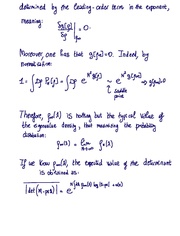 determined by the leading-order term in the exponent,
meaning:
δg(ρ)/δρ |ρ∞ = 0.
Moreover, one has that g(ρ∞) = 0. Indeed, by
normalization:
1 = ∫ Dρ P(ρ) = ∫ Dρ e^{N² g(ρ)} ~ e^{N² g(ρ∞)} → g(ρ∞) = 0
saddle
point
Therefore, ρ∞(λ) is nothing but the typical value of
the eigenvalue density, thus maximizing the probability
distribution:
ρ∞(λ) = lim N→∞ ρ(λ)
If we know ρ∞(λ), the expected value of the determinant
is obtained as: